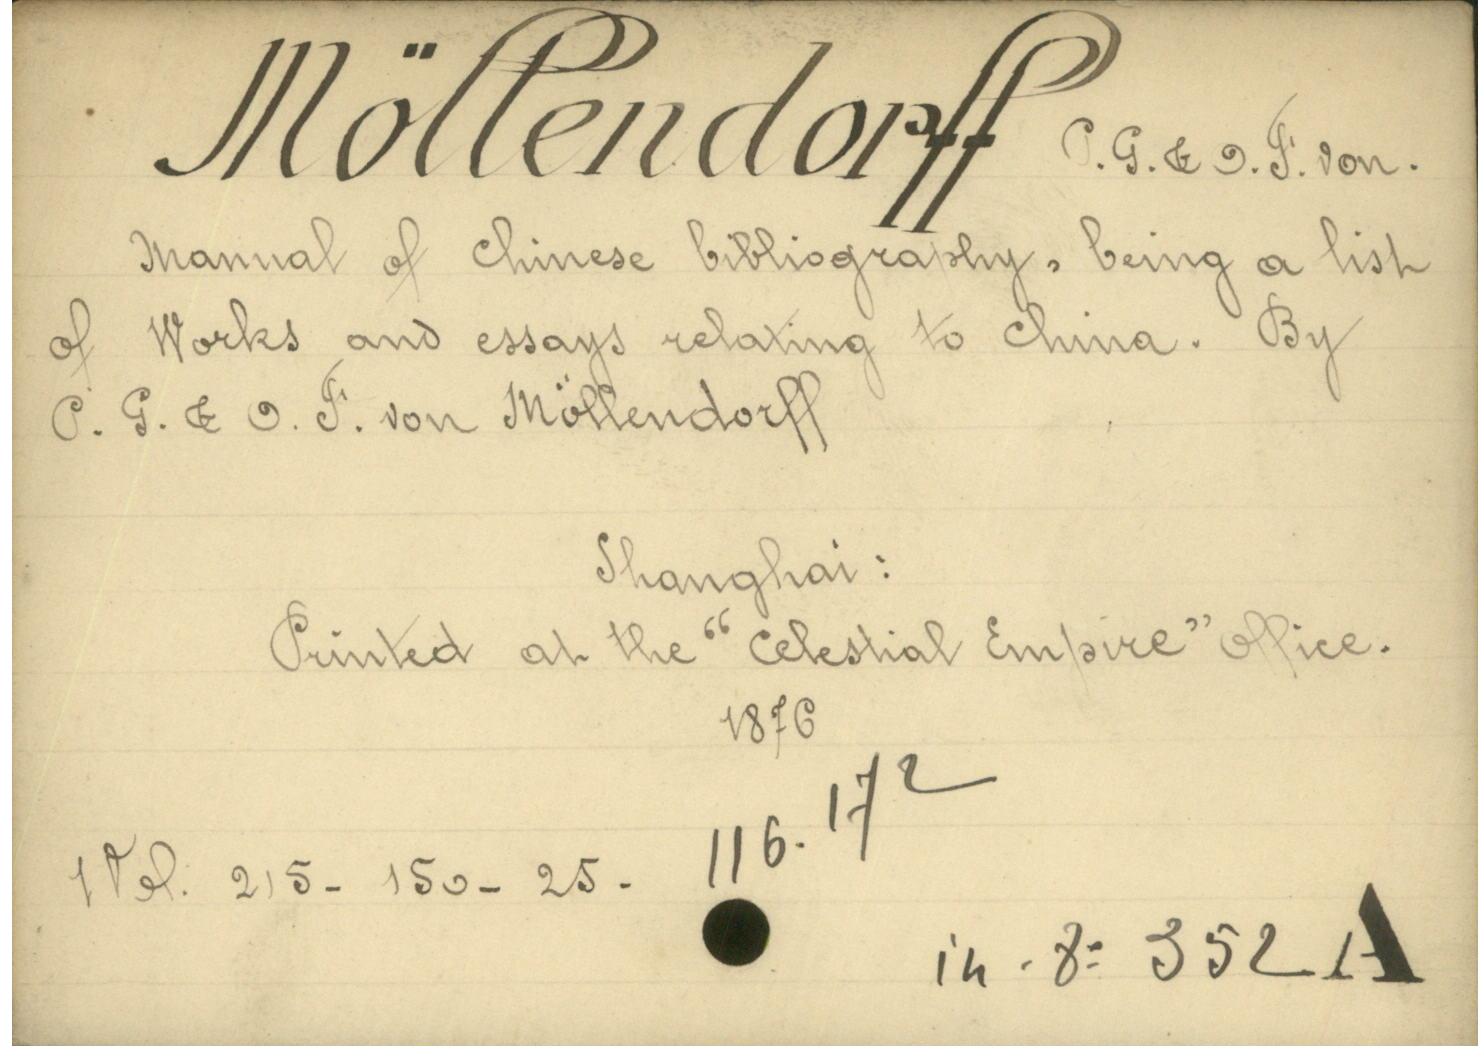 Möllendorff P. G. & O. F. von.
Manual of chinese bibliography, being a list
of Works and essays relating to china. By
P. G. & O. F. von Möllendorff
Shanghai:
Printed at the “Celestial Empire” Office.
1876
116.172
1 Vol. 215- 150- 25.
in-8º 352 A